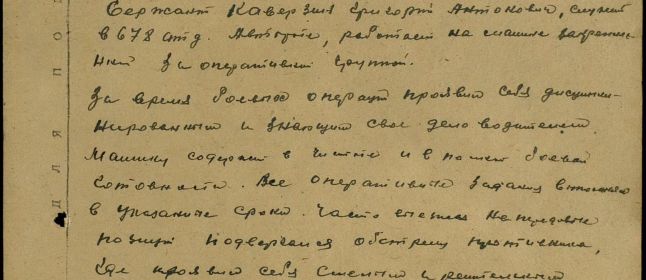 Сержант Каверзин Григорий Антонович, служит
в 678 атд. Автороте, работает на машине закреплен-
ный за оперативной группой.
За время боевых операций проявил себя дисципли-
нированным и знающим свое дело водителем.
Машину содержит в чистоте и в полной боевой
готовности. Все оперативные задания выполнял
в указанные сроки. Часто выезжая на передовые
позиции подвергался обстрелу противника,
где проявил себя смелым и решительным
ДЛЯ ПО